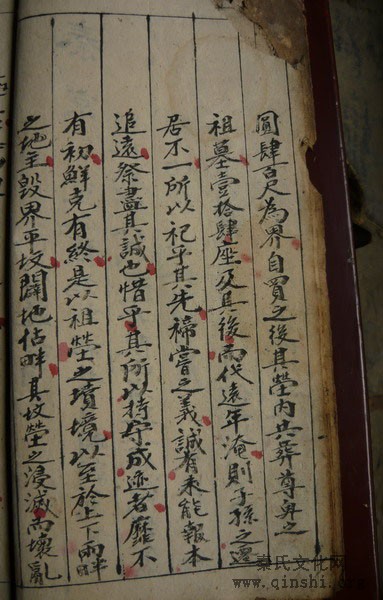 圓肆百尺為界自買之後其塋内共葬尊卑之
祖墓壹拾肆座及其後而代遠年淹則子孫之遷
居不一所以祀乎其先禘嘗之義誠有未能報本
追遠祭盡其誠也惜乎其所以持守成迹者靡不
有初鮮克有終是以祖塋之墳境以至於上下兩畔
之地主毀界平坟闢地佔畔其坟塋之浸滅而壞亂
秦氏文化网
www.qinshi.com